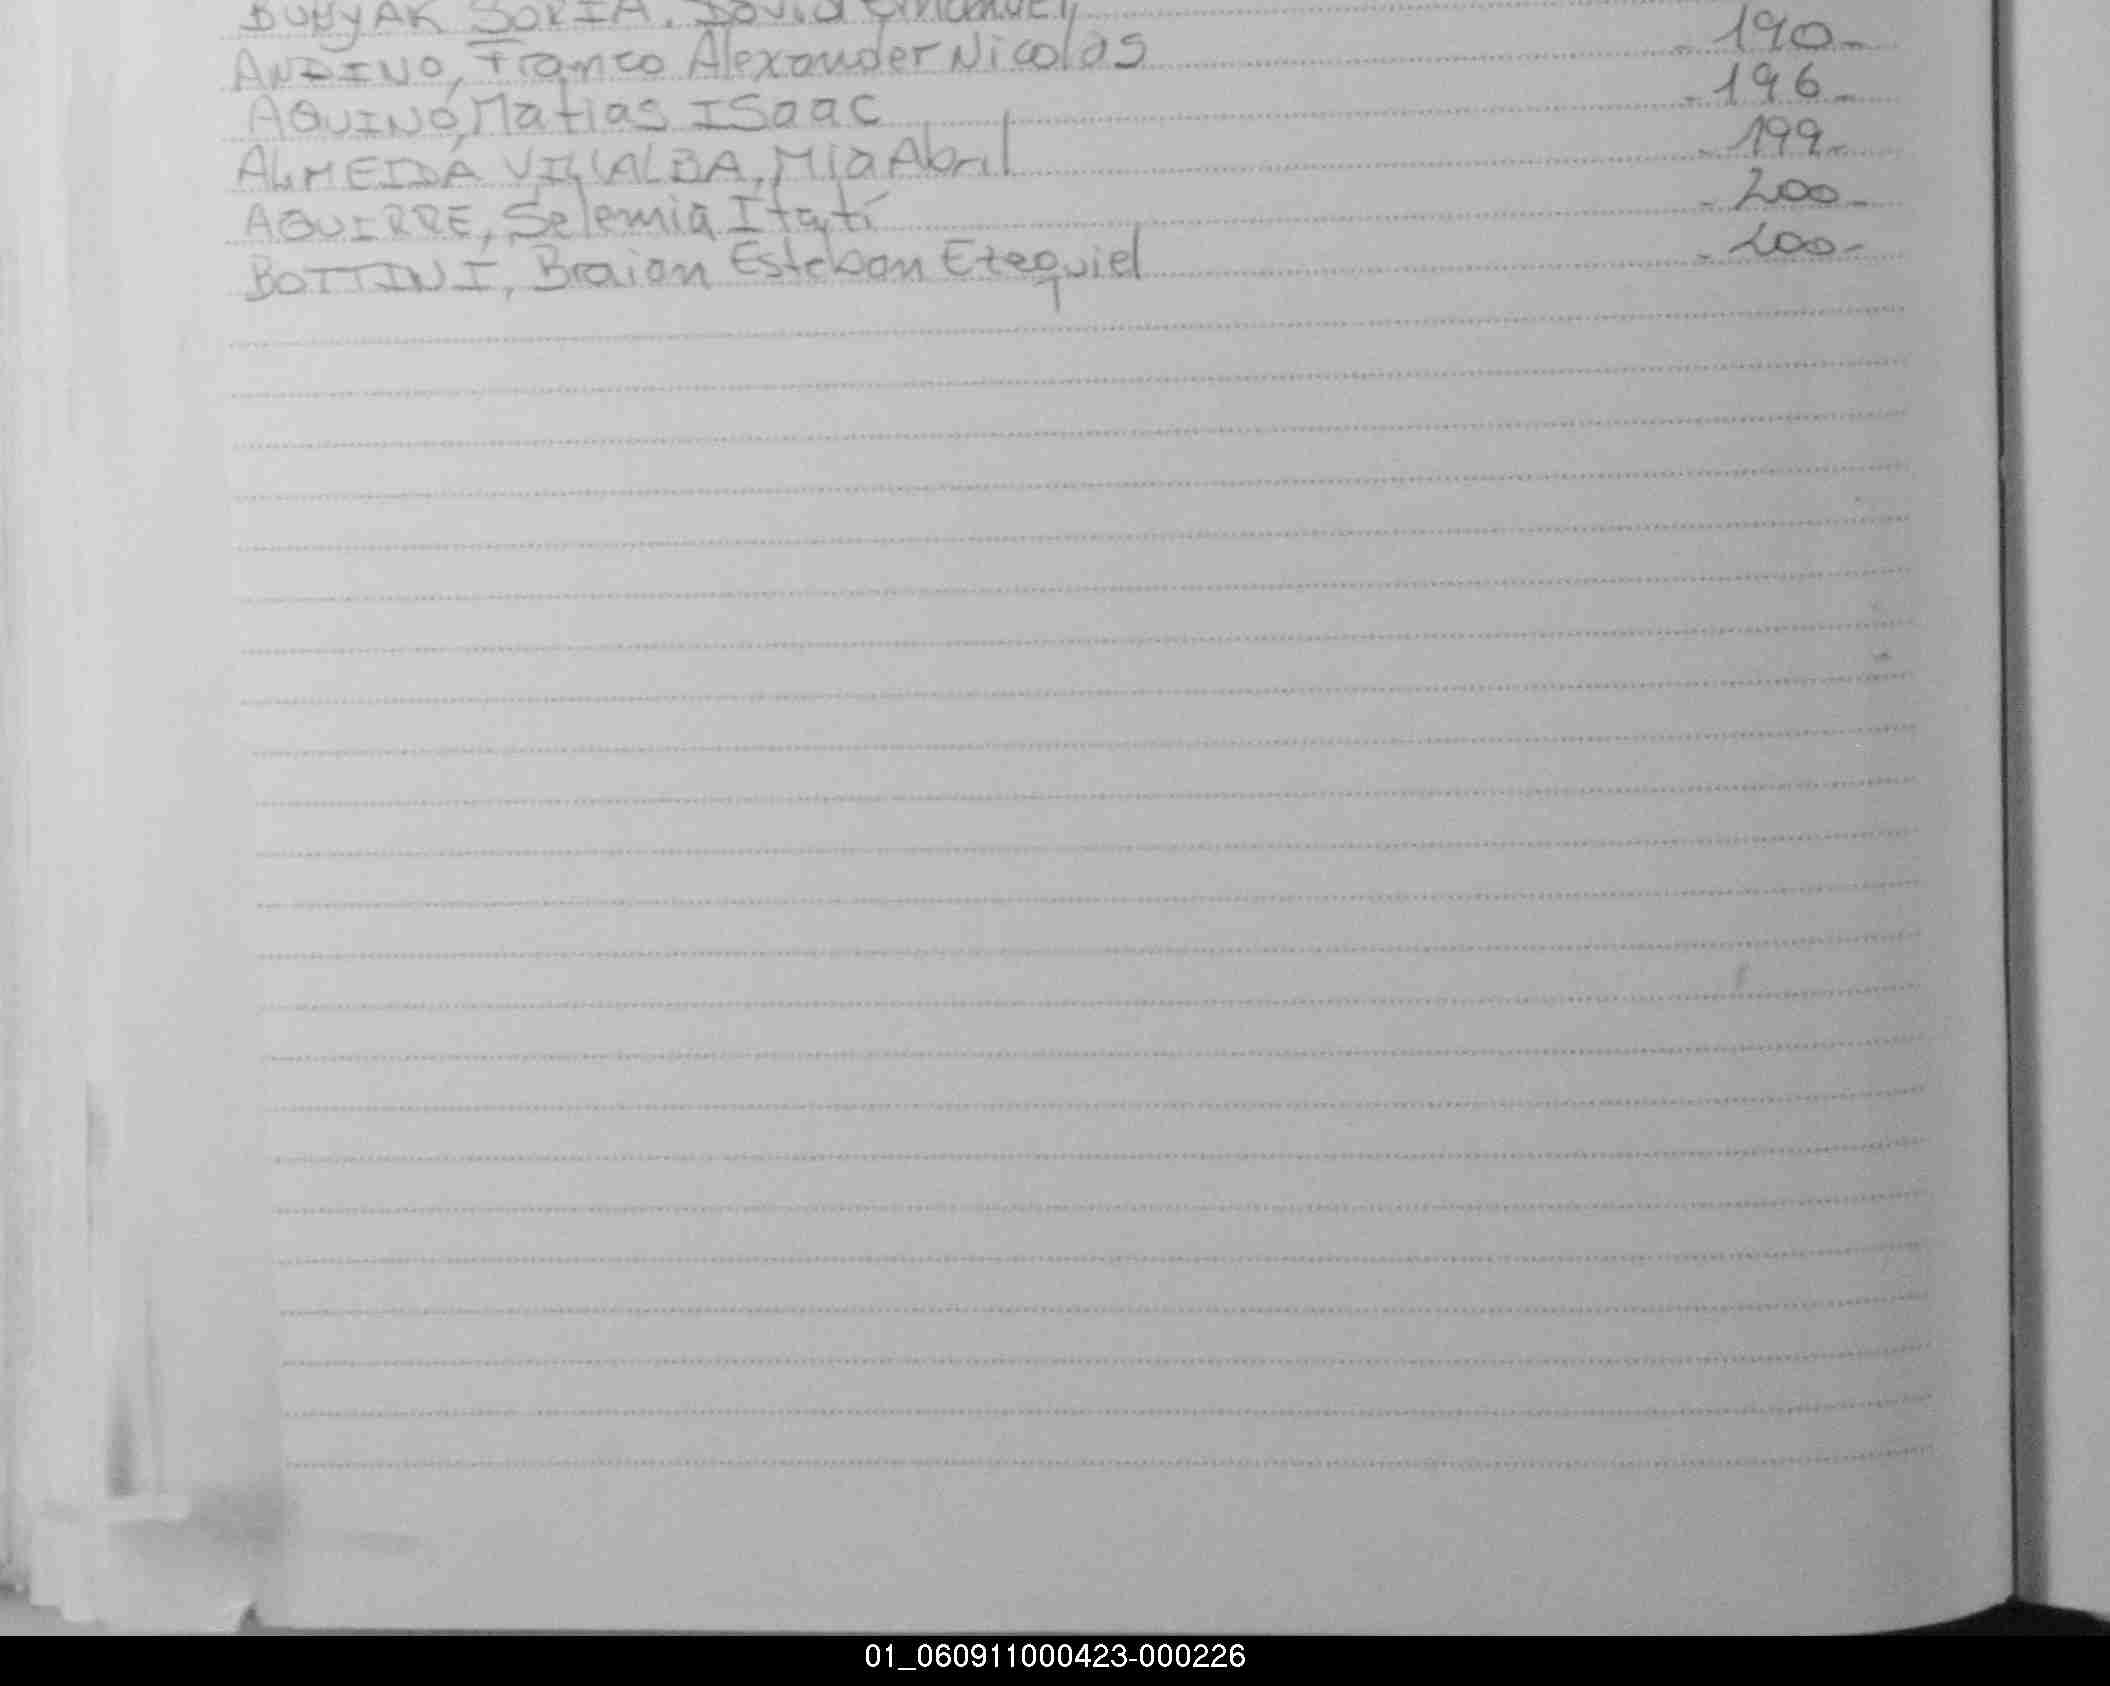 BUHYAK SORIA, David Emanuel
ANDINO, Franco Alexander Nicolás - 190 -
AQUINO, Matias ISaac - 196 -
ALMEIDA VILLALBA, Mia Abril - 199 -
AGUIRRE, Selemia Itatí - 200 -
BOTTINI, Braian Esteban Ezequiel - 200 -
01_060911000423-000226